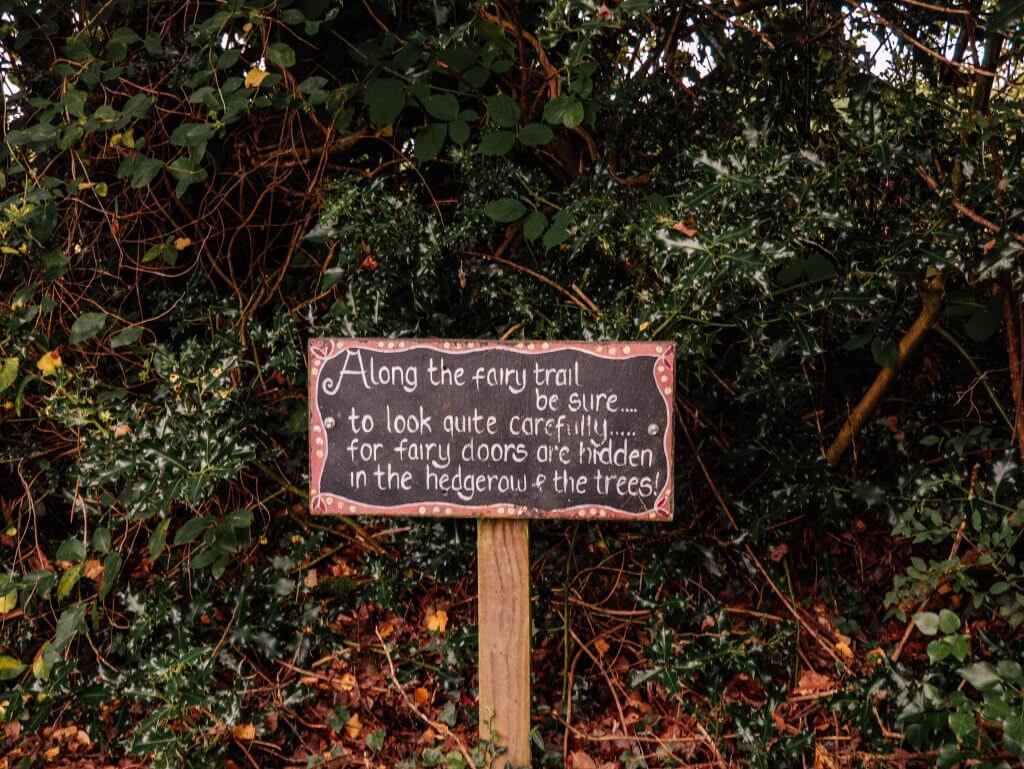 Along the fairy trail
be sure....
to look quite carefully.....
for fairy doors are hidden
in the hedgerow & the trees!